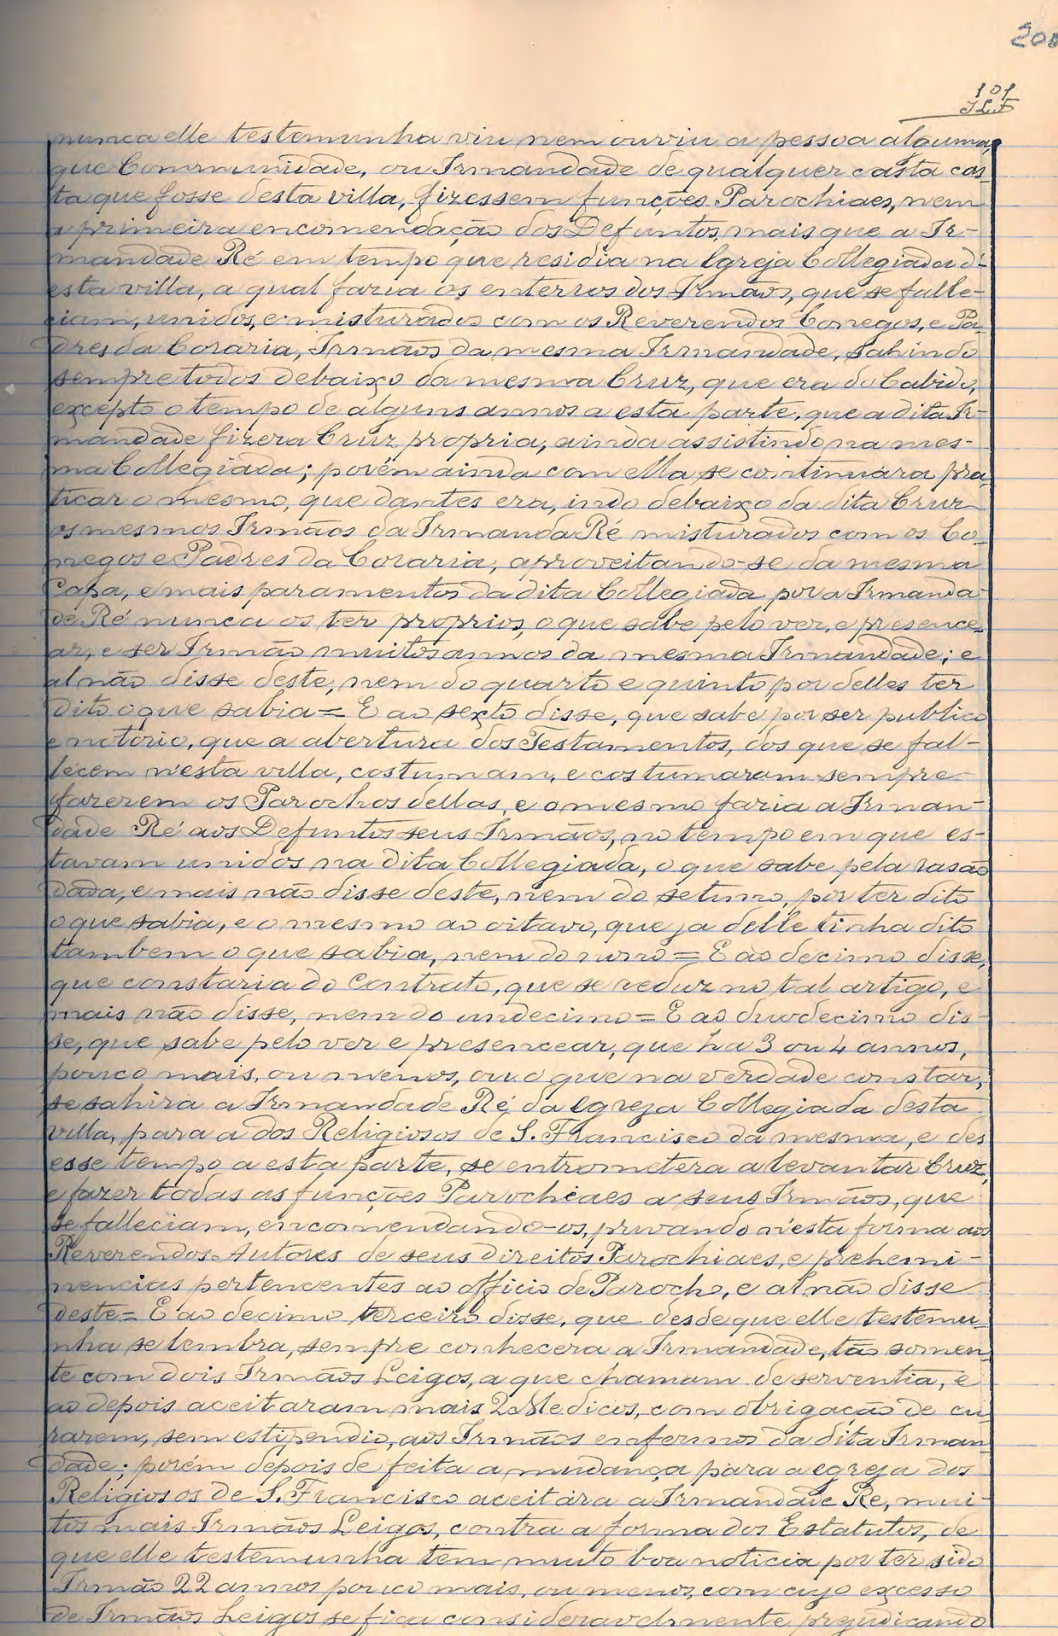 200
101
nunca elle testemunha viu nem ouviu a pessoa alguma,
que Communidade, ou Irmandade de qualquer casta cas-
ta que fosse desta villa, fizessem funções Parochiaes, nem
a primeira encomendação dos Defuntos, mais que a Ir-
mandade Ré em tempo que residia na Igreja Collegiada d'-
esta villa, a qual faria os enterros dos Irmãos, que se falle-
ciam, unidos, e misturados com os Reverendos Conegos, e Pa-
dres da Coraria, Irmãos da mesma Irmandade, sahindo
sempre todos debaixo da mesma Cruz, que era do Cabido,
excepto o tempo de alguns annos a esta parte, que a dita Ir-
mandade fizera Cruz propria, ainda assistindo na mes-
ma Collegiada; porém ainda com ella se continuara pra-
ticar o mesmo, que dantes era, indo debaixo da dita Cruz
os mesmos Irmãos da Irmanda Ré misturados com os Co-
negos e Padres da Coraria, aproveitando-se da mesma
Capa, e mais paramentos da dita Collegiada por a Irmanda-
de Ré nunca os ter proprios, o que sabe pelo ver, e presence-
ar, e ser Irmão muitos annos da mesma Irmandade; e
al não disse deste, nem do quarto e quinto por delles ter
dito o que sabia = E ao sexto disse, que sabe por ser publico
e notorio, que a abertura dos Testamentos, dos que se fal-
lecem n'esta villa, costumam, e costumaram sempre
fazerem os Parochos dellas, e o mesmo faria a Irman-
dade Ré aos Defuntos seus Irmãos, no tempo em que es-
tavam unidos na dita Collegiada, o que sabe pela rasão
dada, e mais não disse deste, nem do setimo, por ter dito
o que sabia, e o mesmo ao oitavo, que ja delle tinha dito
tambem o que sabia, nem do nono = E ao decimo disse,
que constaria do Contrato, que se reduz no tal artigo, e
mais não disse, nem do undecimo = E ao duodecimo dis-
se, que sabe pelo ver e presencear, que ha 3 ou 4 annos,
pouco mais, ou menos, ou o que na verdade constar,
se sahira a Irmandade Ré da Igreja Collegiada desta
villa, para a dos Religiosos de S. Francisco da mesma, e des
esse tempo a esta parte, se entrometera a levantar Cruz,
e fazer todas as funções Parochiaes a seus Irmãos, que
se falleciam, encomendando-os, privando n'esta forma aos
Reverendos Autores de seus direitos Parochiaes, e prehemi-
nencias pertencentes ao officio de Parocho, e al não disse
deste = E ao decimo terceiro disse, que desde que elle testemu-
nha se lembra, sempre conhecera a Irmandade, tão somen-
te com dois Irmãos Leigos, a que chamam de serventia, e
ao depois aceitaram mais 2 Medicos, com obrigação de cu-
rarem, sem estipendio, aos Irmãos enfermos da dita Irman-
dade; porém depois de feita a mudança para a egreja dos
Religiosos de S. Francisco aceitára a Irmandade Ré, mui-
tos mais Irmãos Leigos, contra a forma dos Estatutos, de
que elle testemunha tem muito boa noticia por ter sido
Irmão 22 annos pouco mais, ou menos, com cujo excesso
de Irmãos Leigos se fica consideravelmente prejudicando